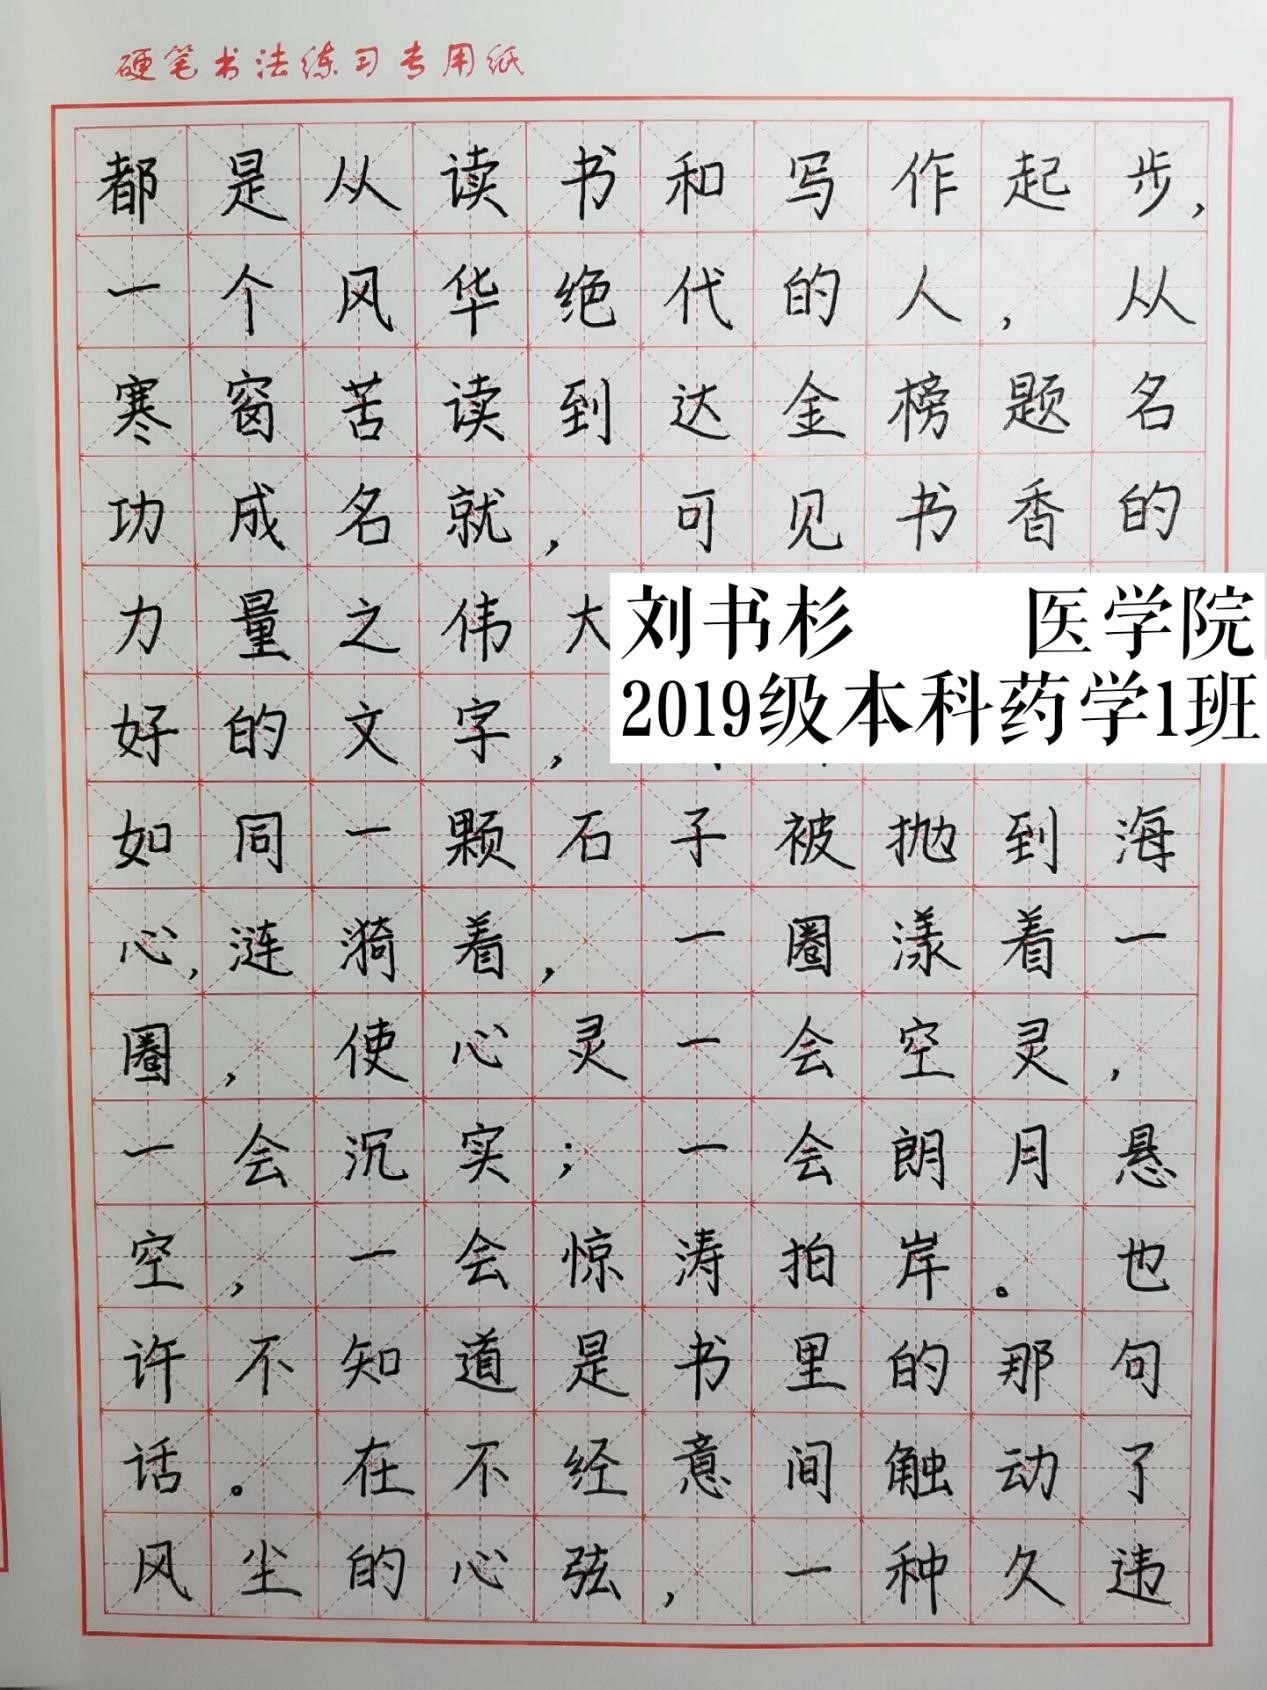 硬笔书法练习专用纸
都是从读书和写作起步,
一个风华绝代的人,从
寒窗苦读到达金榜题名
功成名就,可见书香的
力量之伟大
刘书杉 医学院
2019级本科药学1班
好的文字,
如同一颗石子被抛到海
心,涟漪着,一圈漾着一
圈,使心灵一会空灵,
一会沉实;一会朗月悬
空,一会惊涛拍岸。也
许不知道是书里的那句
话。在不经意间触动了
风尘的心弦,一种久违